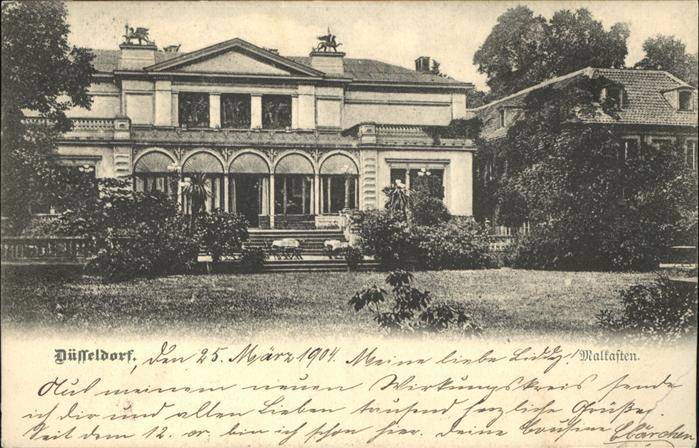 Düsseldorf. Den 25. März 1904. Meine liebe Liddy! Malkasten.
Aus meinem neuen Wirkungskreis sende
ich dir und allen Lieben tausend herzliche Grüße.
Seit dem 12. cr. bin ich schon hier. Deine Cousine